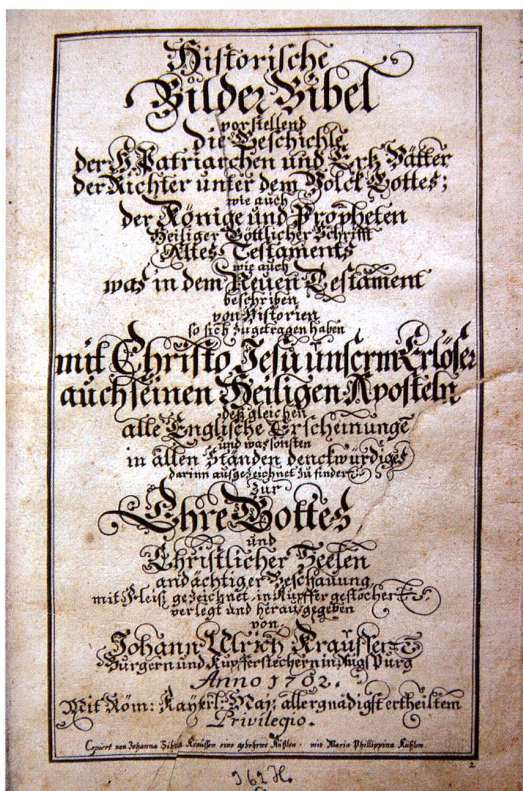 Historische
Bilder Bibel
vorstellend
die Geschicht
der H. Patriarchen und Ertz Vätter
der Richter unter dem Volck Gottes;
wie auch
der Könige und Propheten
Heiliger Göttlicher Schrifft
Altes Testaments
wie auch
was in dem Neuen Testament
beschriben
von Historien
so sich zugetragen haben
mit Christo Jesu unserm Erlöser
auch seinen Heiligen Aposteln
deßgleichen
alle Englische Erscheinunge
und was sonsten
in allen Ständen denckwürdiges
darinn aufgezeichnet zu finden
Zur
Ehre Gottes
und
Christlicher Seelen
andächtiger Beschauung
mit Fleiß gezeichnet, in Kupffer gestochen
verlegt und herausgegeben
von
Johann Ulrich Kraußen
Burgern und Kupfferstechern in Augspurg
Anno 1702.
Mit Röm: Kayserl: Maj: allergnädigst ertheiltem
Privilegio.
Copiert von Johanna Sibilla Kraußen eine gebohrne Küßlen - mit Maria Phillippina Küßlen
2